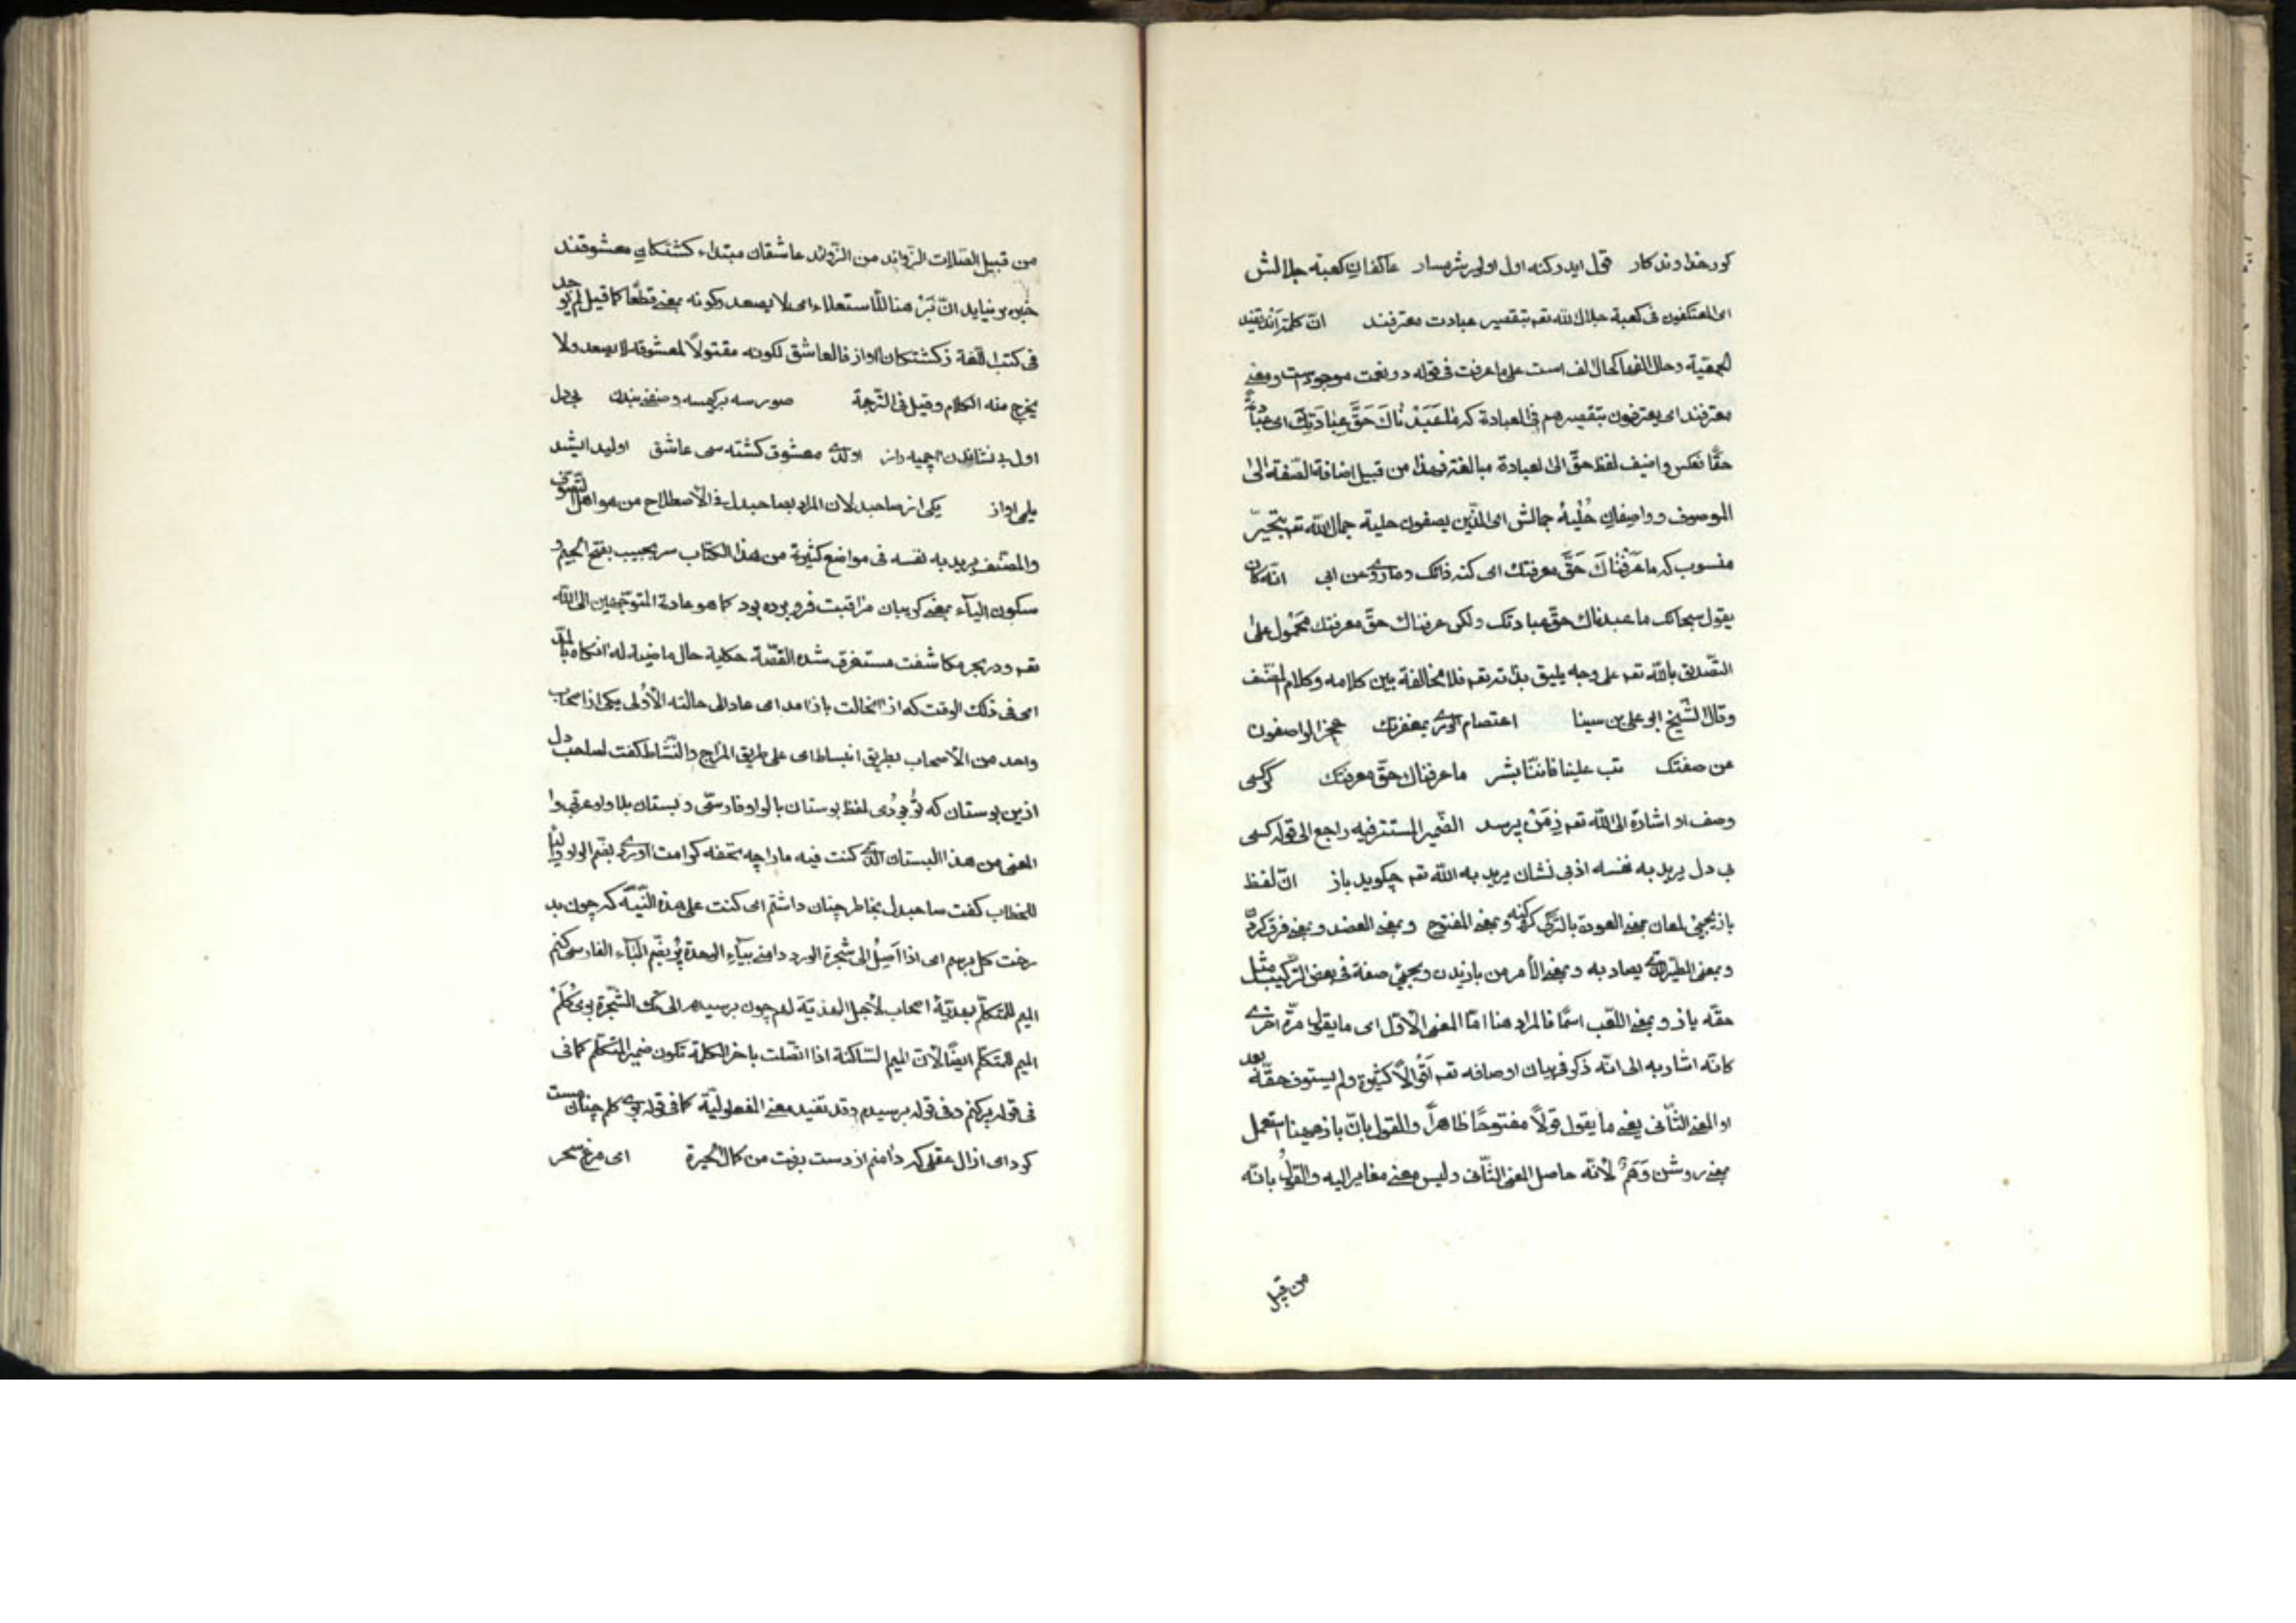 کور خداوندکار قول ایدر کنه اول اولر شرمسار عاکفان کعبهٔ جلالش
ای المعتکفون فی کعبة جلال الله تعم بتقصیر عبادت معترفند انّ کلمة اند تفید
الجمعیة وحال الفها کحال الف است علی ما عرفت فی قوله دو نعمت موجودست ومعنی
معترفند ای یعترفون بتقصیرهم فی العبادة که ما عَبَدْناكَ حَقَّ عِبادَتِكَ ای
حقّا فعکس واضیف لفظ حقّ الی العبادة مبالغة فهذا من قبیل اضافة الصّفة الی
الموصوف وواصفان حُلیهٔ جمالش ای الّذین یصفون حلیة جمال الله تعم بتحیّر
منسوب که ما عَرَفْناكَ حَقَّ معرفتك ای کنه ذاتك وما روی عن ابی انّه کان
یقول سبحانك ما عبدناك حقّ عبادتك ولکن عرفناك حقّ معرفتك مَحْمُول علی
التّصدیق بالله تعم علی وجه یلیق بذاته تعم فلا مخالفة بین کلامه وکلام المصنّف
وقال الشّیخ ابو علی بن سینا اعتصام الوری بمغفرتك عجز الواصفون
عن صفتك تب علینا فاننا بشر ما عرفناك حقّ معرفتك کر کسی
وصف او اشارة الی الله تعم زمَنْ پرسد الضّمیر المستتر فیه راجع الی قوله کسی
بی دل یرید به نفسه از بی نشان یرید به الله تعم چکوید باز انّ لفظ
باز یجیئ لمعان بمعنی العودة بالترکی کرو کنه وبمعنی المفتوح وبمعنی العضد وبمعنی فرق کردن
وبمعنی الطیر الّذی یصاد به وبمعنی الأمر من بازیدن ویجیئ صفة فی بعض الترکیب مثل
حقّه باز وبمعنی اللّعب اسمًا فالمراد هنا امّا المعنی الاوّل ای ما یقول مرّة اخری
کانّه اشار به الی انّه ذکر فی بیان اوصافه تعم اقوالاً کثیرة ولم یستوف حقّه بعد
او المعنی الثّانی یعنی ما یقول قولاً مفتوحًا ظاهراً والقول بانّ باز ههنا استعمل
بمعنی روشن وَهَمٌ لأنّه حاصل المعنی الثّانی ولیس معنی مغایر الیه والقول بانّه
من قبیل
من قبیل الصّلات الزّوائد من الزّوائد عاشقان مبتداء کشتکان معشوقند
خبره بر نیاید انّ بَرْ هنا للاستعلاء ای لا یصعد وکونه بمعنی قطعًا کما قیل لم یوجد
فی کتب اللّغة زکشتکان آواز فالعاشق لکونه مقتولاً لمعشوقه لا یصعد ولا
یخرج منه الکلام وقیل فی التّرجمة صورسه بر کیمسه وصفنی بندن بی دل
اول بی نشاندن نجیه دیر اولدی معشوق کشته سی عاشق اولید ایشد
یلمی آواز یکی از صاحبدلان المراد بصاحبدل فی الأصطلاح من هو اهل التّصوّف
والمصنّف یرید به نفسه فی مواضع کثیرة من هذا الکتاب سر بجیب بفتح الجیم و
سکون الیآء بمعنی کریبان مراقبت فرو برده بود کما هو عادة المتوجّهین الی الله
تعم ودر بحر مکاشفت مستغرق شده القصّة حکایة حال ماضیة له آنکاه بالمد
ای فی ذلك الوقت که از آنحالت باز آمد ای عاد الی حالته الأولی یکی از اصحاب
واحد من الأصحاب بطریق انبساط ای علی طریق المزاح والنّشاط کفت لصاحب دل
ازین بوستان که تُو بُودی لفظ بوستان بالواو فارسیّ وبستان بلا واو عربی و
المعنی من هذا البستان الّذی کنت فیه مارا چه تحفه کرامت آوردی بفتح الواو والیا
للخطاب کفت صاحبدل بخاطر چنان داشتم ای کنت علی هذه النّیّة که چون بد
رخت کل برسم ای اذا اَصِلُ الی شجرة الورد دامنی بیاء الوحدة پُر بضمّ البآء الفارسی کنم
المیم للمتکلّم بهدیّهٔ اصحاب لأجل الهدیّة لهم چون برسیدم الی تلك الشّجرة بوی کُلَمْ
المیم للمتکلّم ایضًا لأنّ المیم السّاکنة اذا اتّصلت بآخر الکلمة تکون ضمیر المتکلّم کما فی
فی قوله پر کنم وفی قوله برسیدم وقد تفید معنی المفعولیّة کما فی قوله بوی کلم چنان مست
کرد ای ازال عقلی که دامنم از دست برفت من کمال الحیرة ای مرغ سحر